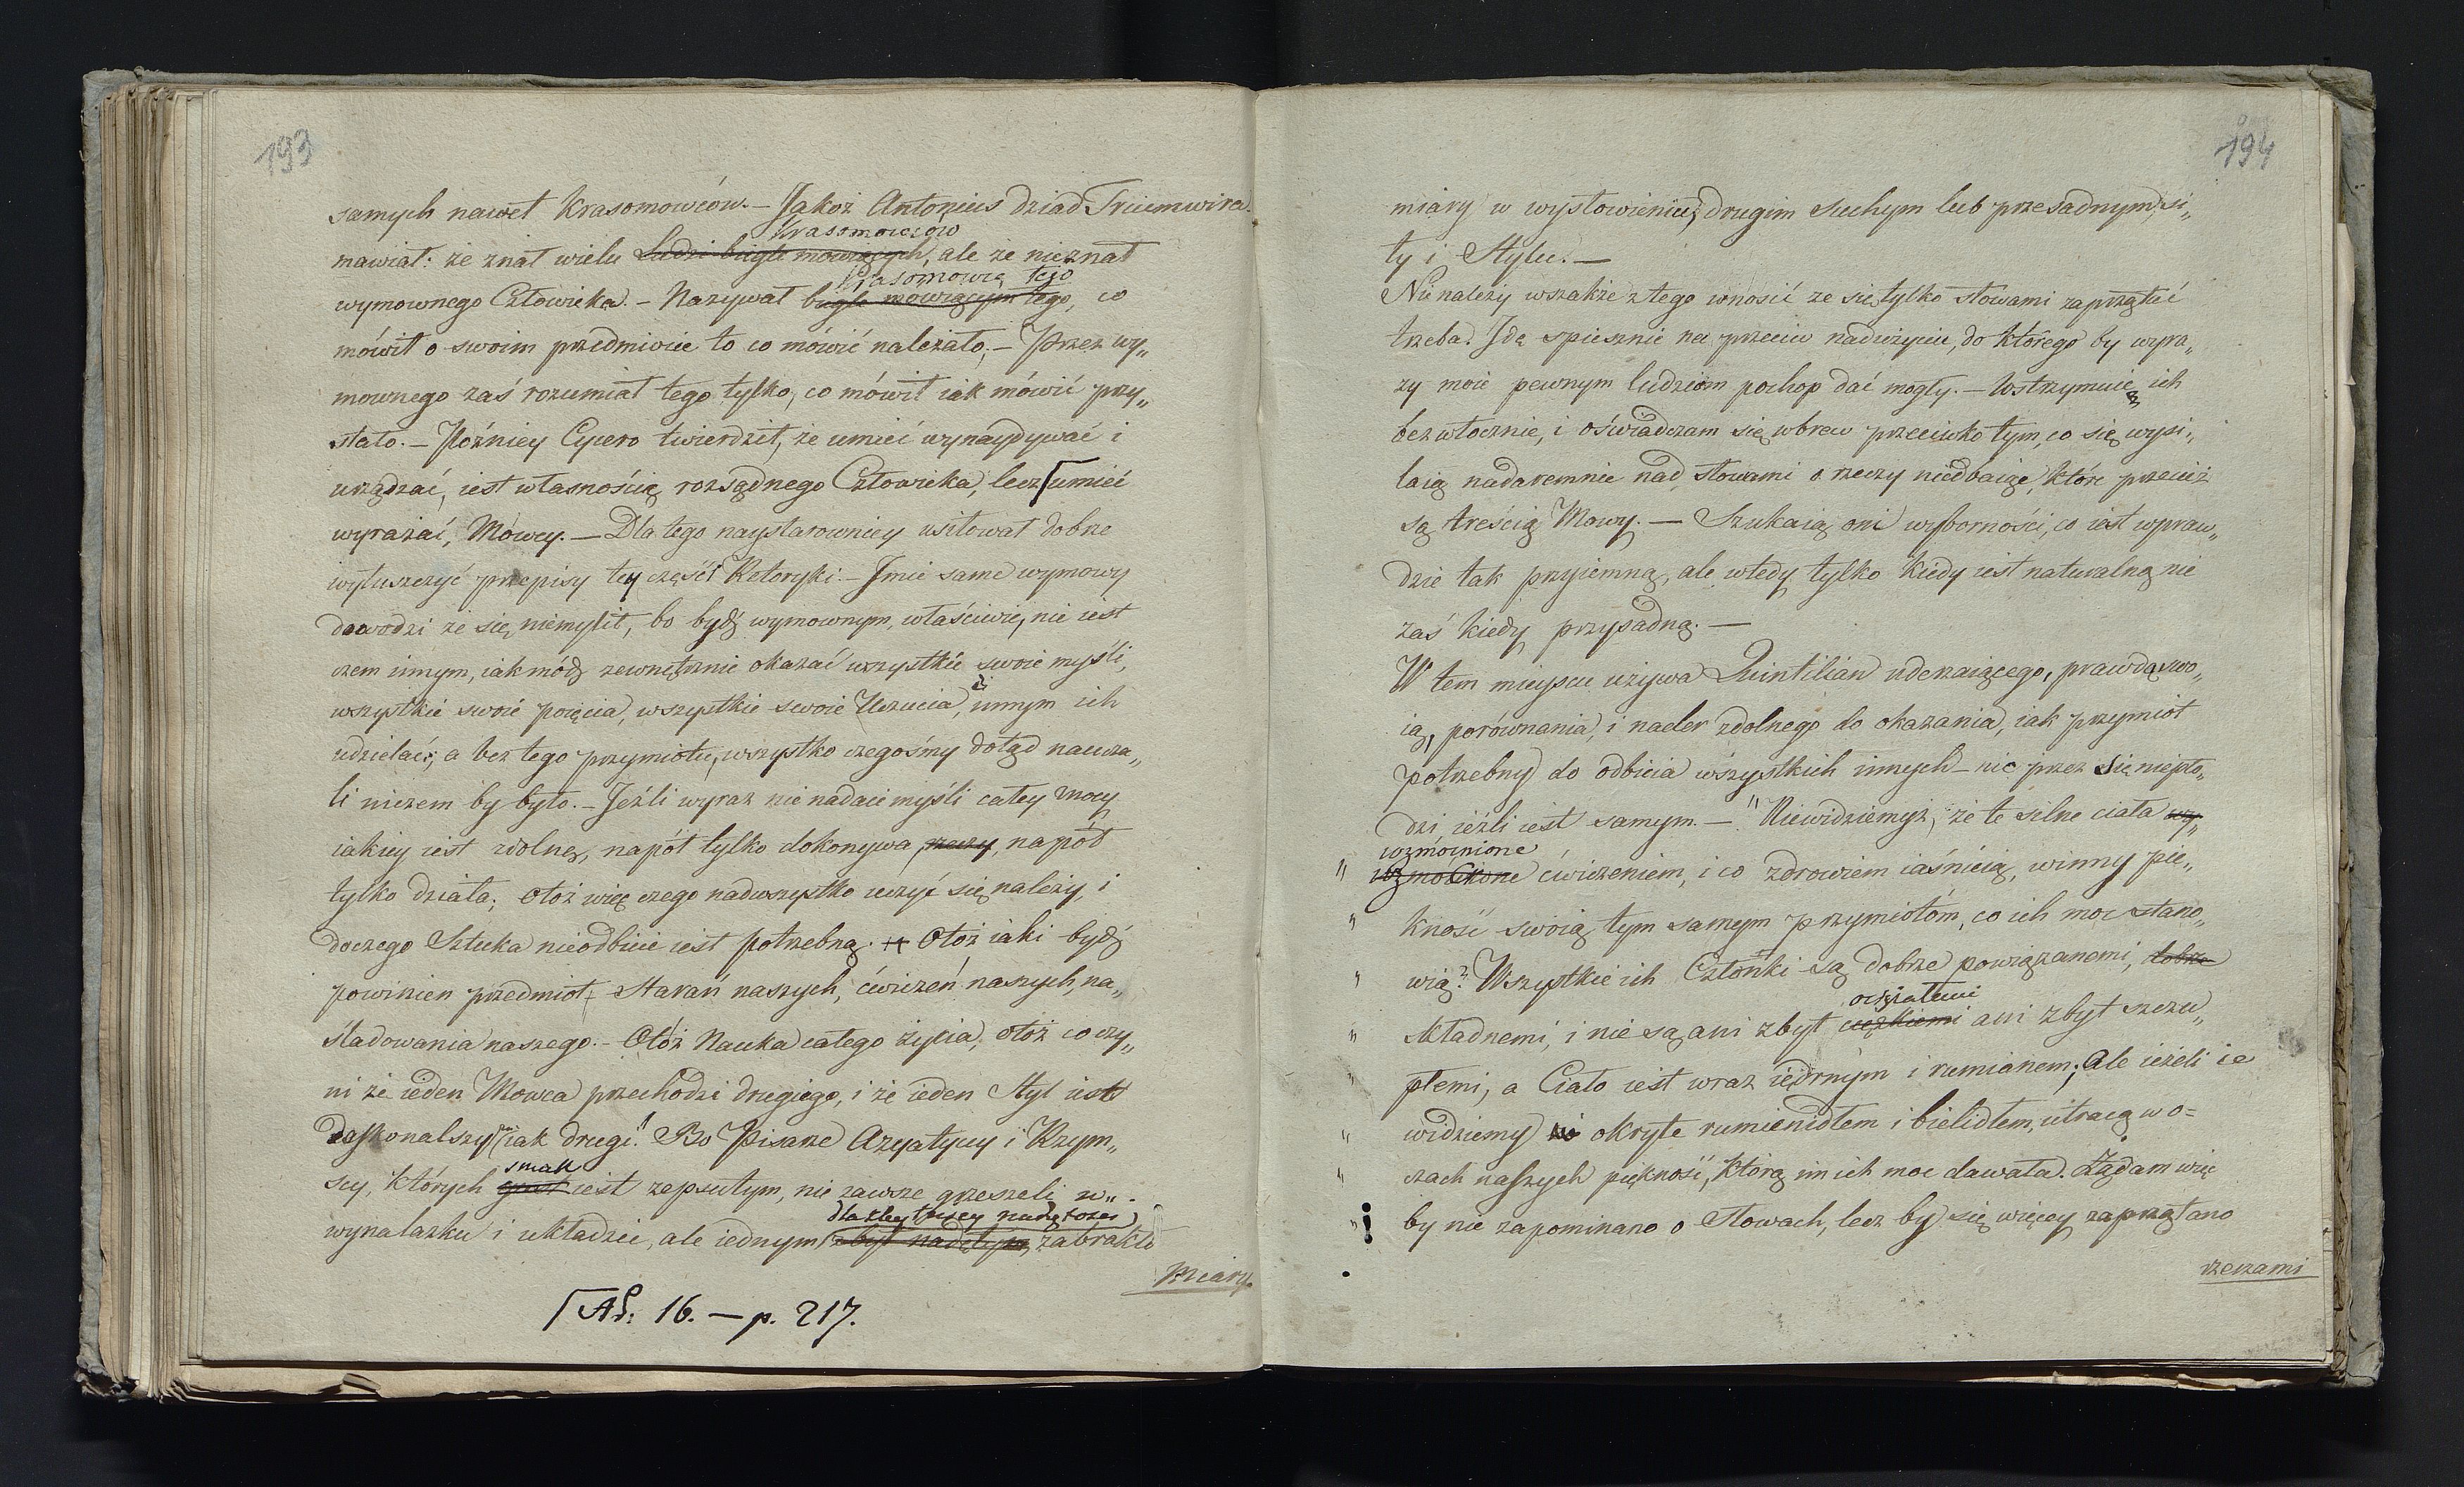 193
samych nawet Krasomowców. – Jakoż Antonius dziad Triumwira
Krasomowców
mawiał: że znał wielu ludzi biegle mówiących, ale że nieznał
Krasomowcą tego
wymownego Człowieka. – Nazywał biegle mówiącym tego, co
mówił o swoim przedmiocie to co mówić należało; – Przez wy„
mownego zaś rozumiał tego tylko, co mówił iak mówić przy„
stało. – Późniey Cycero twierdził, że umieć wynaydywać i
urządzać, iest własnością rozsądnego Człowieka, lecz umieć
wyrażać, Mówcy. – Dla tego naystarowniey usiłował dobrze
wyłuszczyć przepisy tey części Retoryki. – Jmie same wymowy
dowodzi że się niemylił, bo bydź wymownym, właściwie, nie iest
czem innym, iak módz zewnętrznie okazać wszystkie swoie myśli,
wszystkie swoie poięcia, wszystkie swoie Uczucia, i innym ich
udzielać; a bez tego przymiotu, wszystko czegośmy dotąd naucza„
li niczem by było. – Jeźli wyraz nie nadaie myśli całey mocy
iakiey iest zdolną, napół tylko dokonywa rzeczy, napół
tylko działa; otoż więc czego nadwszystko uczyć się należy, i
doczego Sztuka nieodbicie iest potrzebną. Otoż iaki bydź
powinien przedmiot Starań naszych, ćwiczeń naszych, na„
śladowania naszego. – Otóż Nauka całego życia, otóż co czy„
ni że ieden Mowca przechodzi drugiego, i że ieden Styl iest
daskonalszy iak drugi. Bo Pisarze Azyatyccy i Rzym„
smak
scy, których gust iest zepsutym, nie zawsze grzeszeli w„
dla zbytniey nadętości
wynalazku i układzie, ale iednym zbyt nadętym, zabrakło
miary
16. – p. 217.
194
miary w wysłowieniu, drugim suchym lub przesadnym, si„
ły i Stylu. –
Nie należy wszakże z tego wnosić ze się tylko słowami zaprzątać
trzeba. Jdę spiesznie na przeciw nadużyciu, do którego by wyra„
zy moie pewnym ludziom pochop dać mogły. – Wstrzymuię ich
bezwłocznie, i oświadczam się wbrew przeciwko tym, co się wysi„
laią nadaremnie nad słowami o rzeczy niedbaiąc, które przecież
są treścią Mowy. – Szukaią oni wyborności, co iest wpraw„
dzie tak przyiemną, ale wtedy tylko kiedy iest naturalną nie
zaś kiedy przysadną. –
W tem mieyscu używa Quintilian uderzaiącego, prawdą swo„
ią, porównania, i nader zdolnego do okazania, iak przymiot
potrzebny do odbicia wszystkich innych – nic przez się niepło„
dzi, ieźli iest samym. – "Niewidziemyż, że te silne ciała wz„
wzmocnione
" wzmocnione ćwiczeniem, i co zdrowiem iaśnieią, winny pię„
" kność swoią tym samym przymiotóm, co ich moc stano„
" wią? Wszystkie ich Członki są dobrze powiązanemi, dobrze
ociężałemi
" składnemi, i nie są ani zbyt ciężkiemi ani zbyt szczu„
" płemi, a Ciało iest wraz iędrnym i rumianem; Ale ieżeli ie
" widziemy okryte rumienidłem i bielidłem, utracą w o=
" czach naszych piękność, którą im ich moc dawała. Żądam więc
" by nie zapominano o Słowach, lecz by się więcey zaprzątano
rzeczami